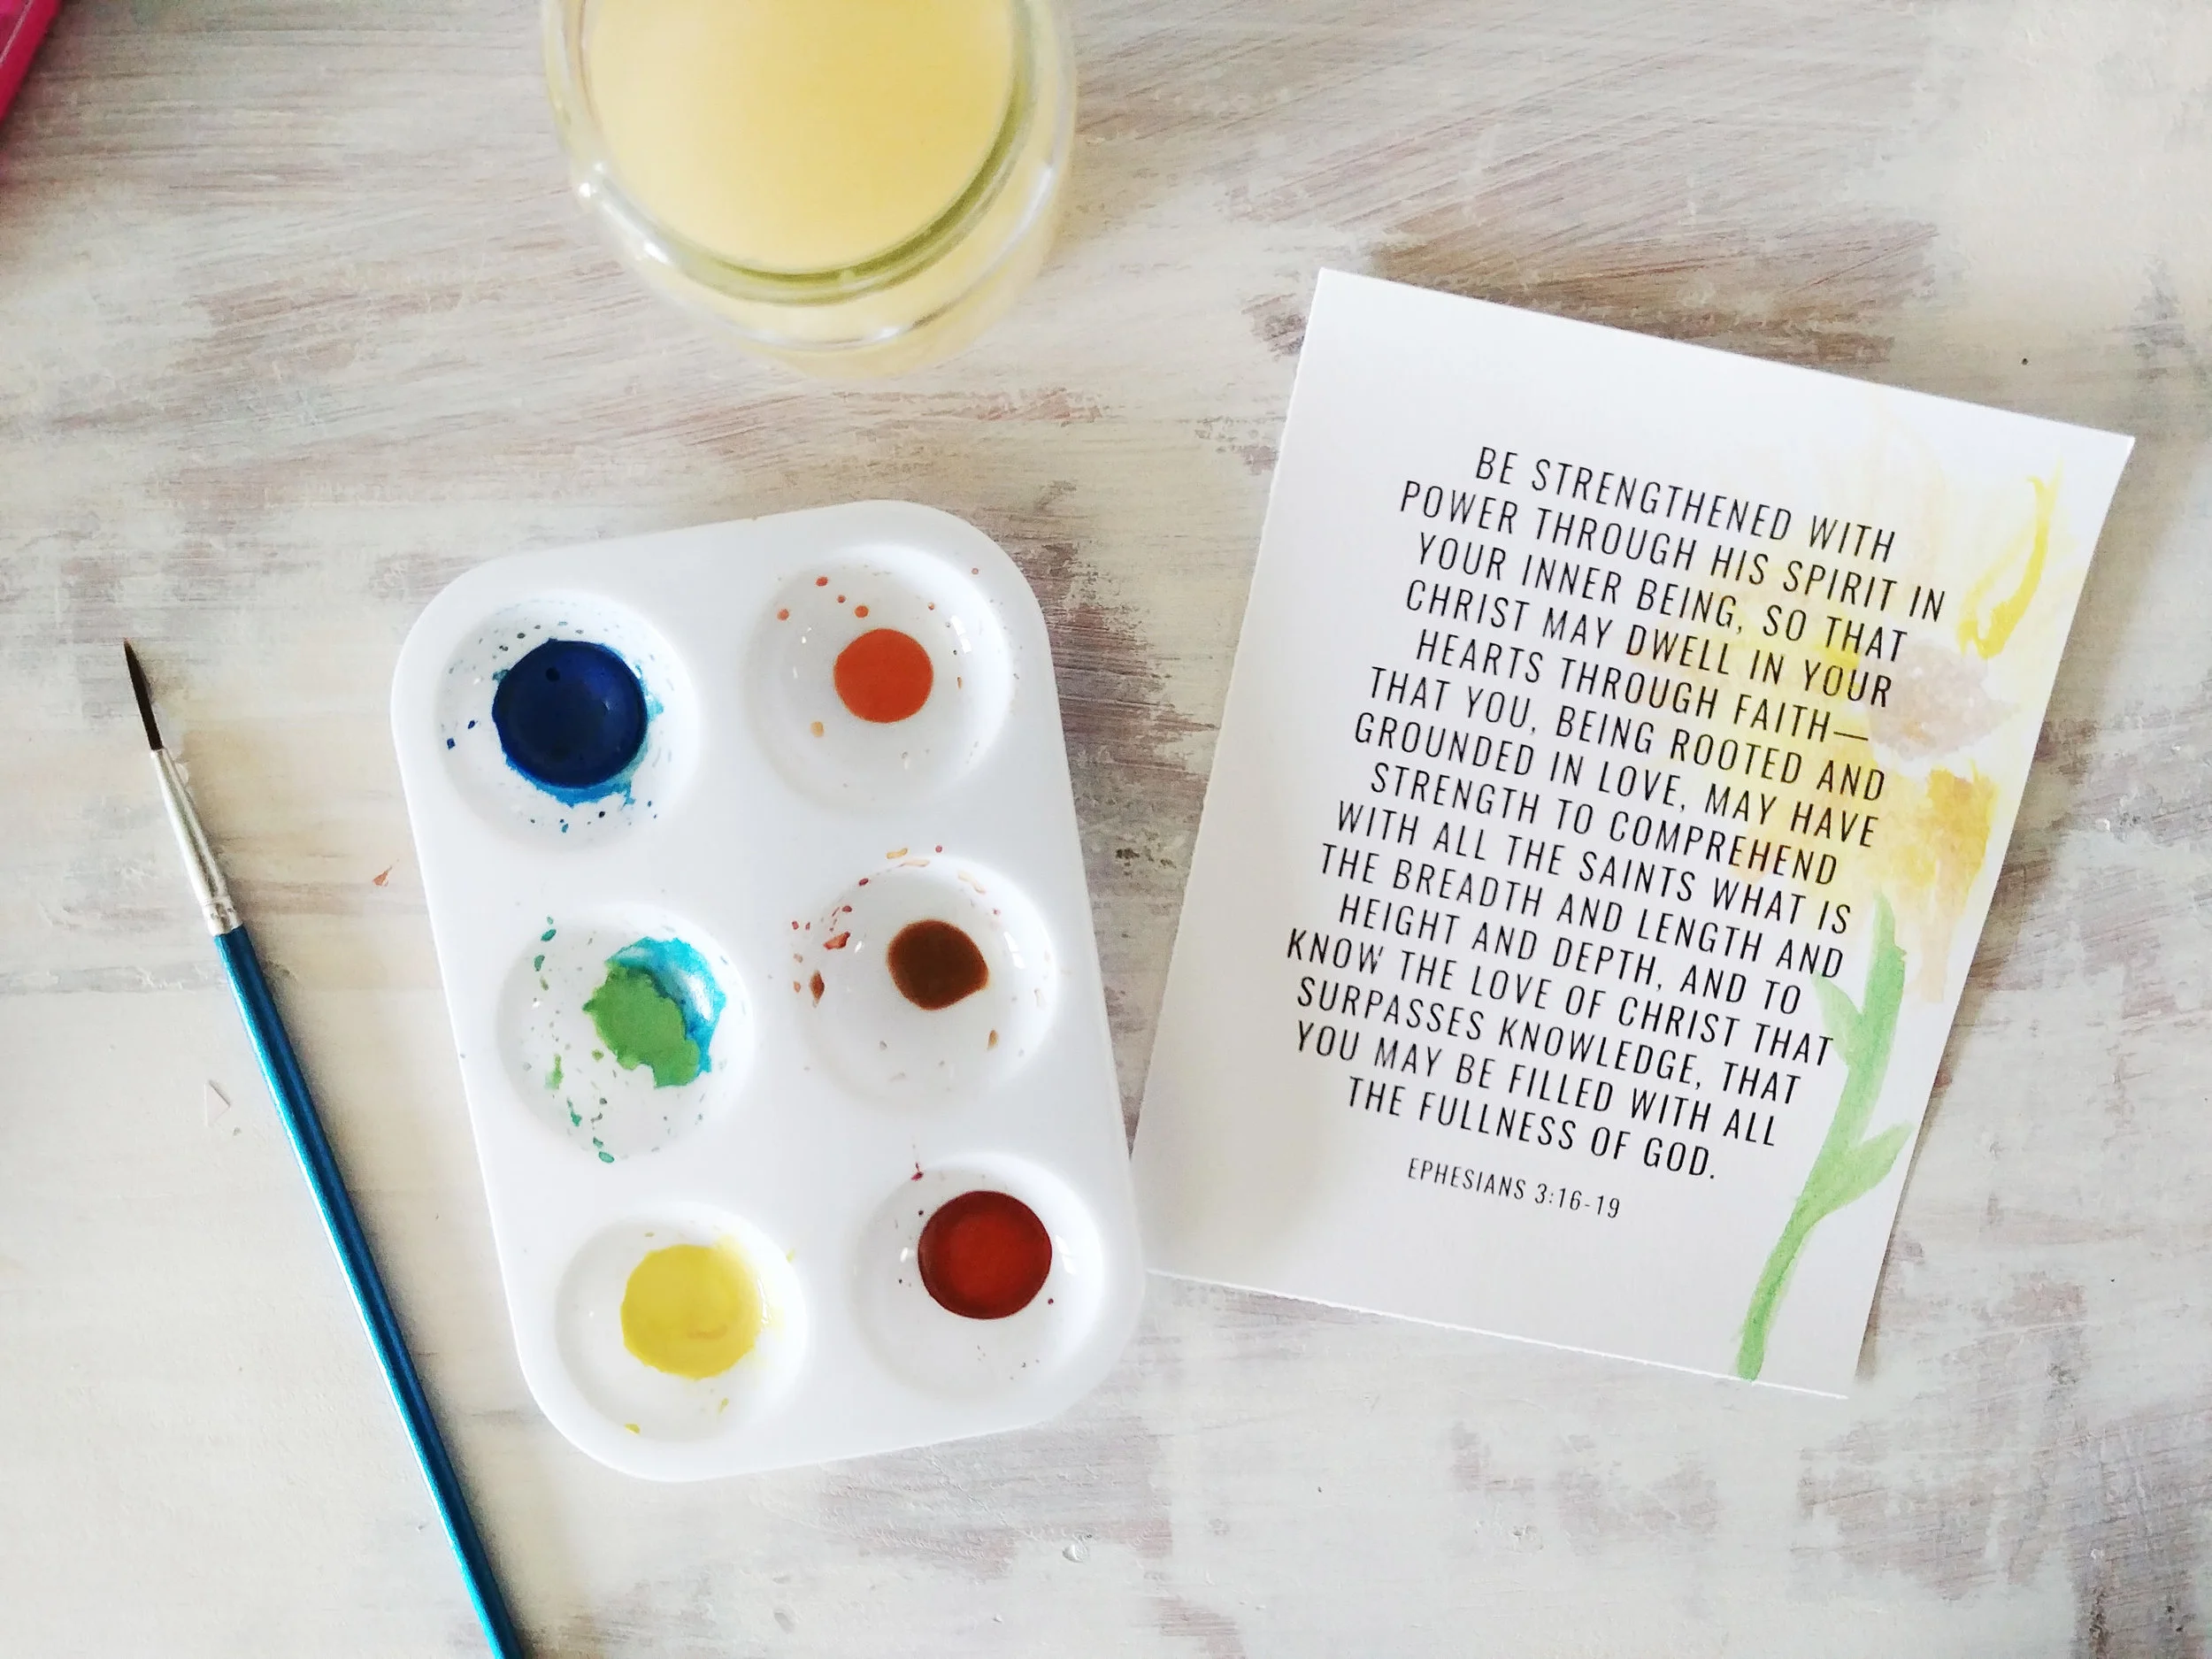 BE STRENGTHENED WITH
POWER THROUGH HIS SPIRIT IN
YOUR INNER BEING, SO THAT
CHRIST MAY DWELL IN YOUR
HEARTS THROUGH FAITH—
THAT YOU, BEING ROOTED AND
GROUNDED IN LOVE, MAY HAVE
STRENGTH TO COMPREHEND
WITH ALL THE SAINTS WHAT IS
THE BREADTH AND LENGTH AND
HEIGHT AND DEPTH, AND TO
KNOW THE LOVE OF CHRIST THAT
SURPASSES KNOWLEDGE, THAT
YOU MAY BE FILLED WITH ALL
THE FULLNESS OF GOD.
EPHESIANS 3:16-19